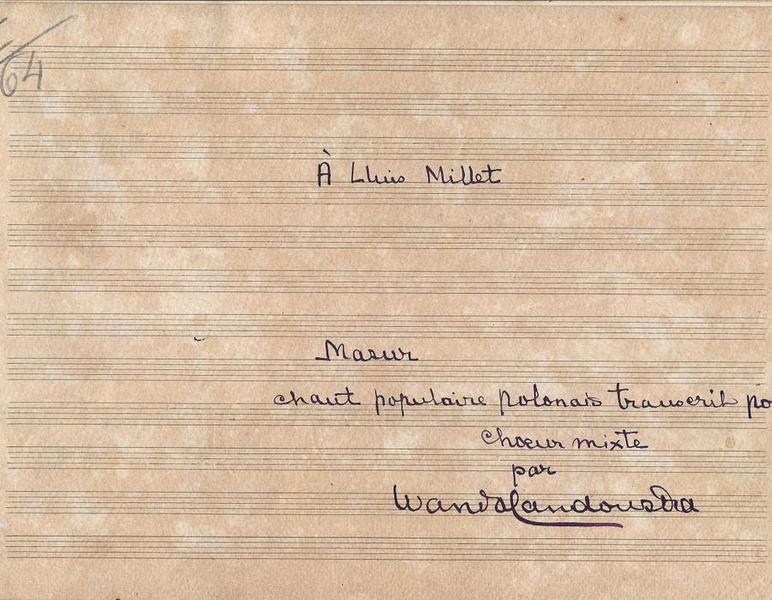 64
À Lluis Millet
Masur
chant populaire polonais transcrit po
chœur mixte
par
Wanda Landowska